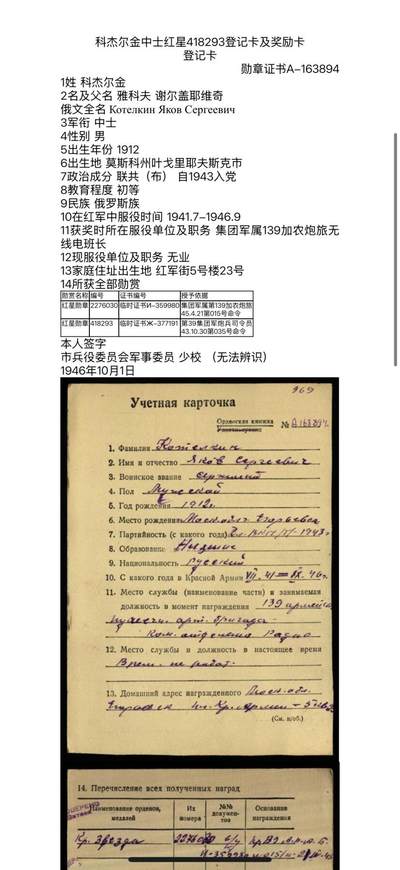 科杰尔金中士红星418293登记卡及奖励卡
登记卡
勋章证书A-163894
1姓 科杰尔金
2名及父名 雅科夫 谢尔盖耶维奇
俄文全名 Котелкин Яков Сергеевич
3军衔 中士
4性别 男
5出生年份 1912
6出生地 莫斯科州叶戈里耶夫斯克市
7政治成分 联共（布） 自1943入党
8教育程度 初等
9民族 俄罗斯族
10在红军中服役时间 1941.7-1946.9
11获奖时所在服役单位及职务 集团军属139加农炮旅无
线电班长
12现服役单位及职务 无业
13家庭住址出生地 红军街5号楼23号
14所获全部勋赏
勋赏名称 编号 证书编号 授予依据
红星勋章 2276030 临时证书И-359980 集团军属第139加农炮旅
45.4.21第015号命令
红星勋章 418293 临时证书Ж-377191 第39集团军炮兵司令员
43.10.30第035号命令
本人签字
市兵役委员会军事委员 少校 （无法辨识）
1946年10月1日
969
Учетная карточка
Орденская книжка № А 163894
1. Фамилия Котелкин
2. Имя и отчество Яков Сергеевич
3. Воинское звание сержант
4. Пол Мужской
5. Год рождения 1912г.
6. Место рождения Моск.обл. Егорьевск
7. Партийность (с какого года) 1943г
8. Образование Низшее
9. Национальность Русский
10. С какого года в Красной Армии VII. 41 — IX. 46г.
11. Место службы (наименование части) и занимаемая
должность в момент награждения 139 армейск
арт. бригада
Ком. отделения Радио
12. Место службы и должность в настоящее время
Врем. не работ.
13. Домашний адрес награжденного Моск. обл.
Егорьевск ул. Кр. армии
(См. н/об.)
14. Перечисление всех полученных наград
Наименование орденов, медалей Их номера №№ докумен-тов Основание награждения
Кр. Звезда